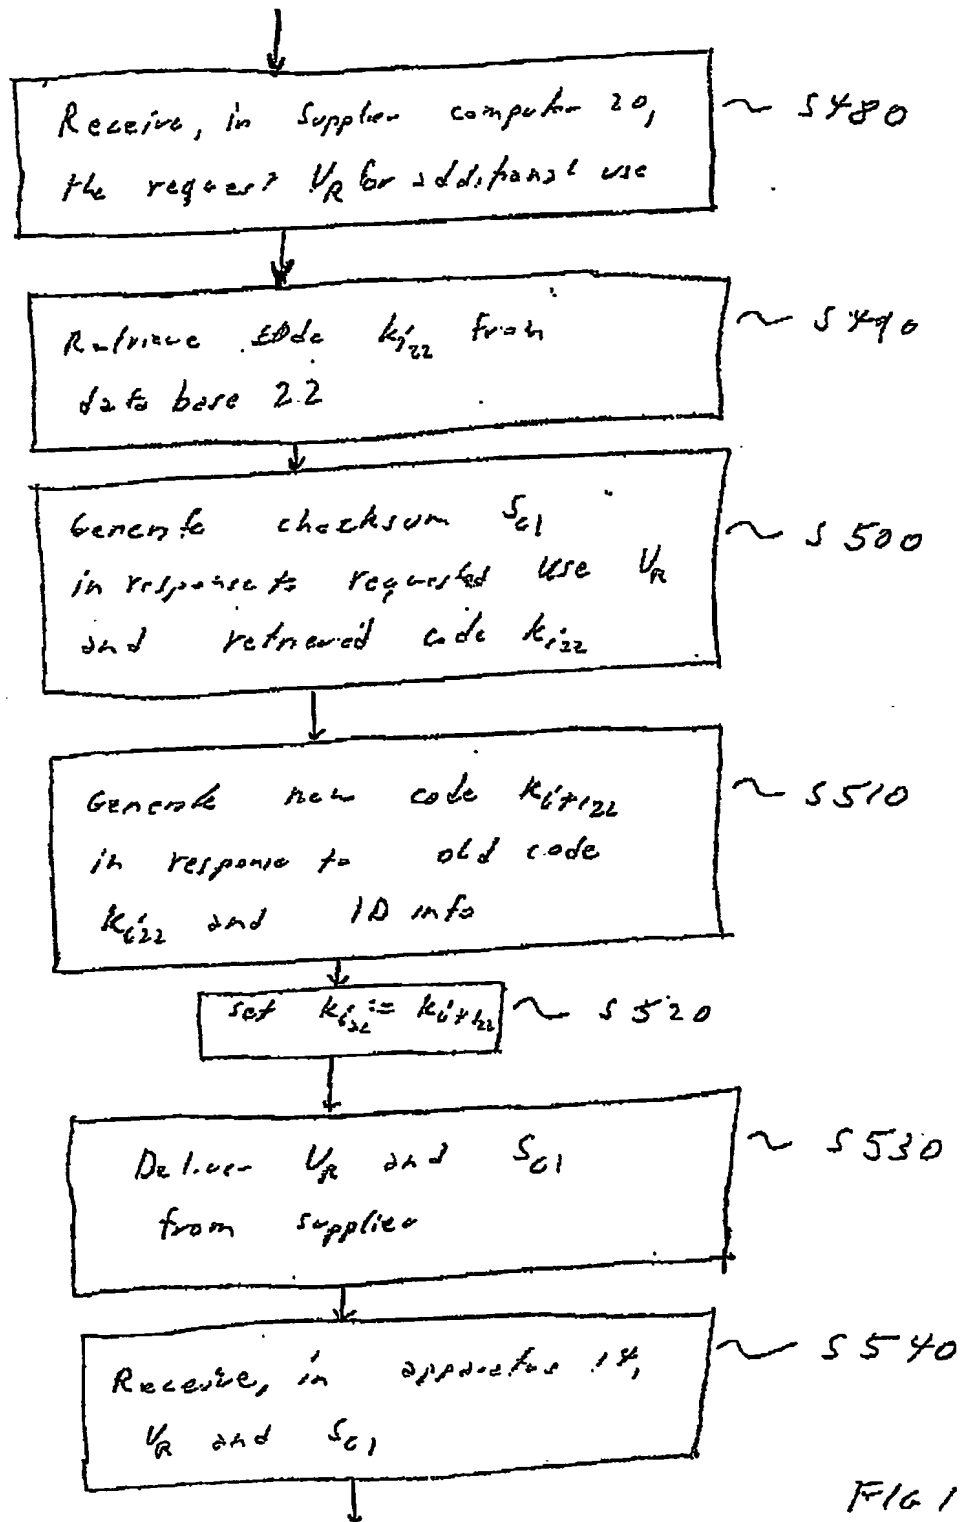 Receive, in supplier computer 20,
the request VR for additional use
S480
Retrieve code ki22 from
data base 22
S490
Generate checksum Sc1
in response to requested use VR
and retrieved code ki22
S500
Generate new code ki+122
in response to old code
ki22 and ID info
S510
set ki22 := ki+122
S520
Deliver VR and Sc1
from supplier
S530
Receive, in apparatus 14,
VR and Sc1
S540
FIG 1